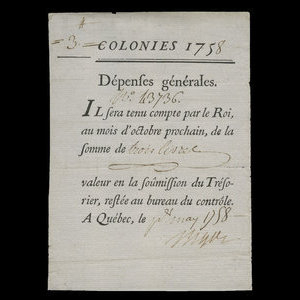 3
COLONIES 1758
Dépenses générales.
No. 43736.
IL sera tenu compte par le Roi,
au mois d'octobre prochain, de la
somme de trois livres
valeur en la soûmission du Trésorier,
restée au bureau du contrôle.
A Québec, le may 1758